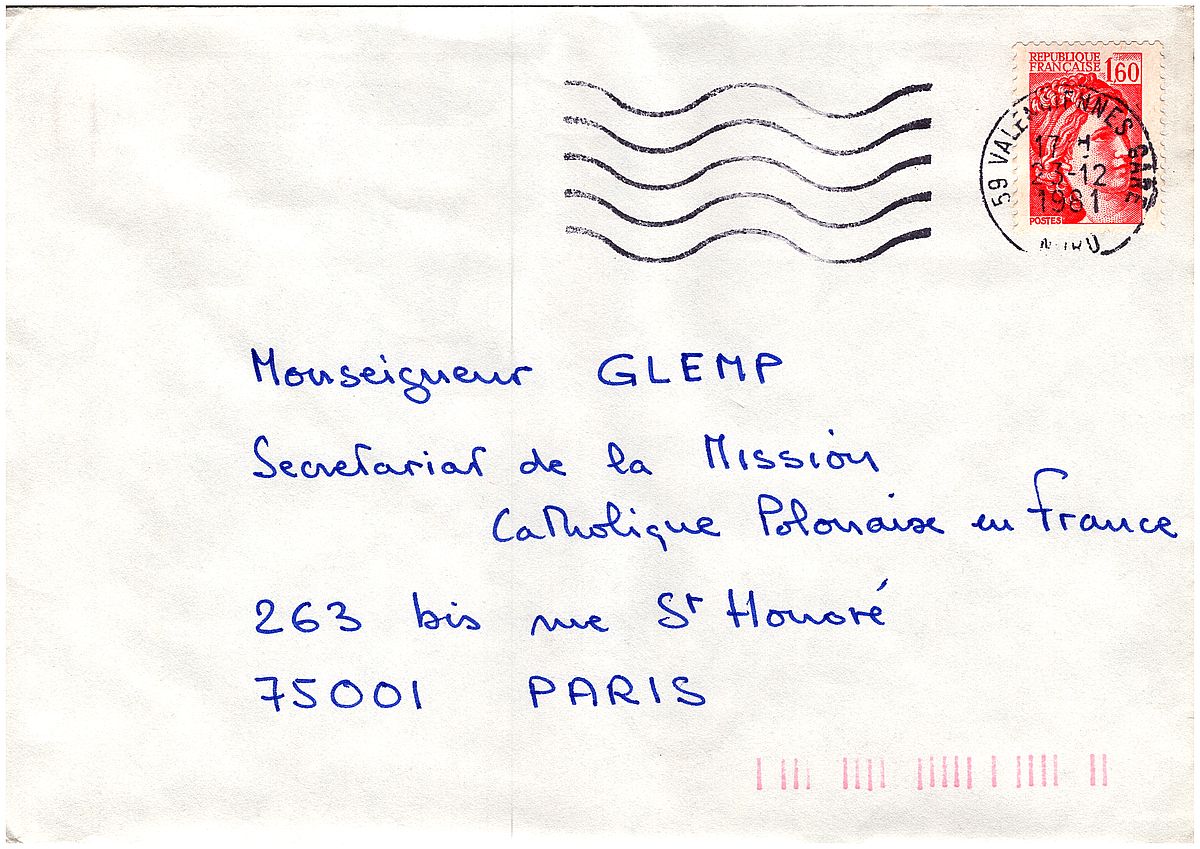 REPUBLIQUE
FRANÇAISE 1,60
59 VALENCIENNES GARE
17 H
23-12
1981
POSTES
Monseigneur GLEMP
Secretariat de la Mission
Catholique Polonaise en France
263 bis rue St Honoré
75001 PARIS